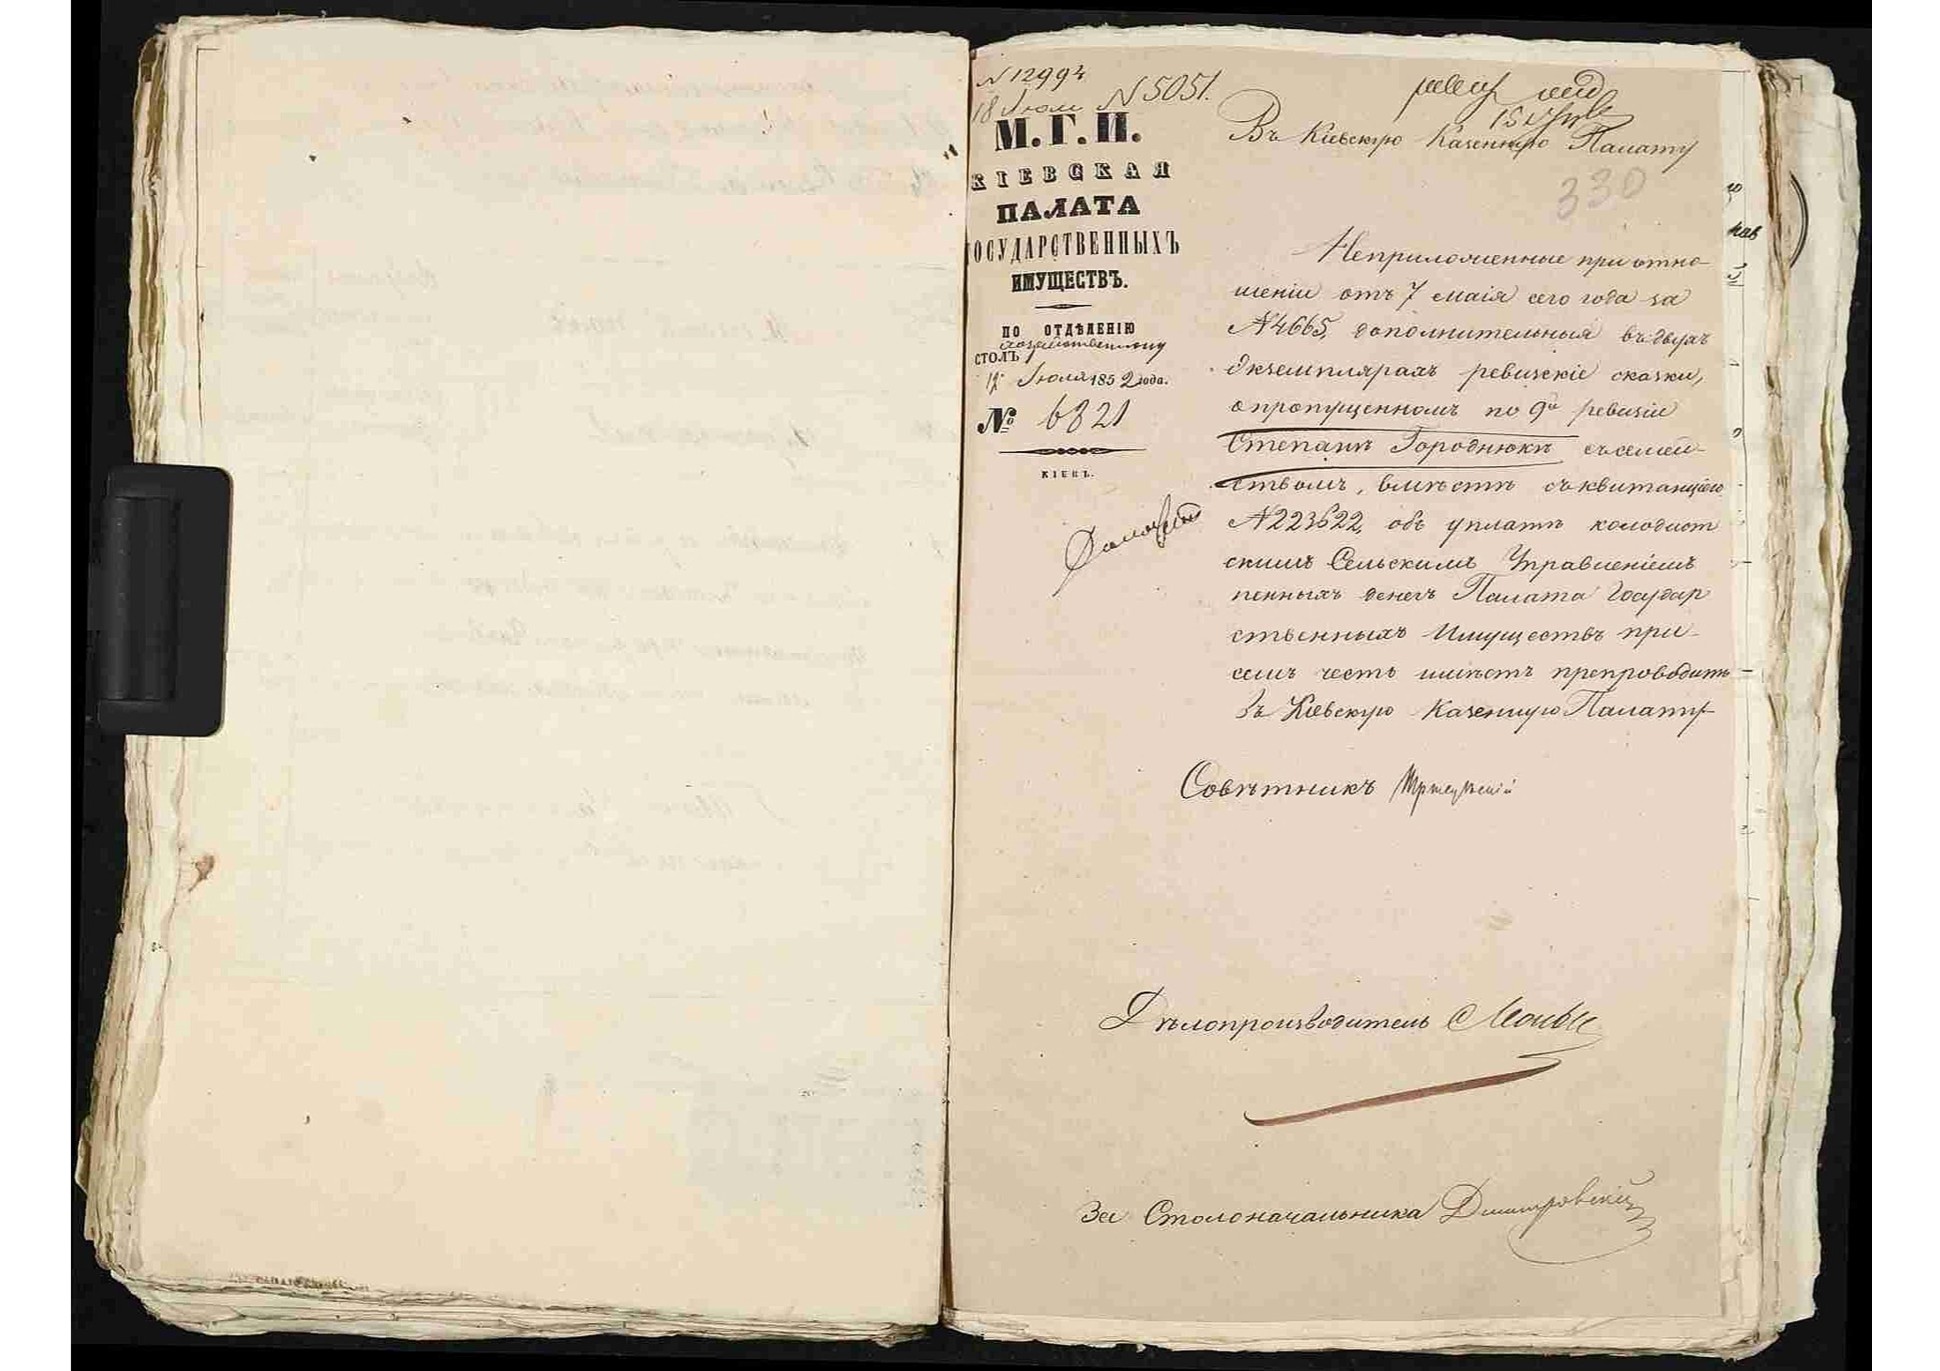 N 12994
18 Июля N 5051.
М.Г.И.
КІЕВСКАЯ
ПАЛАТА
ГОСУДАРСТВЕННЫХЪ
ИМУЩЕСТВЪ.
ПО ОТДѢЛЕНІЮ
хозяйственному
СТОЛЪ
12 Іюля 1852 года.
№ 6821
КІЕВЪ.
Въ Кіевскую Казенную Палату
330
Неприложенные при отно-
шеніи отъ 7 маія сего года за
N 4665, дополнительныя въ двухъ
экземплярахъ ревизскіе сказки,
опропущенномъ по 9й ревизіи
Степанѣ Городнюкѣ съ семей-
ствомъ, вмѣстѣ съ квитанціею
N 223622, объ уплатѣ колодист
скимъ Сельскимъ Управленіемъ
пенныхъ денегъ Палата Государ
ственныхъ Имуществъ при
семъ честь имѣетъ препроводить
въ Кіевскую Казенную Палату
Совѣтникъ
Дѣлопроизводитель
За Столоначальника Дмитровскій